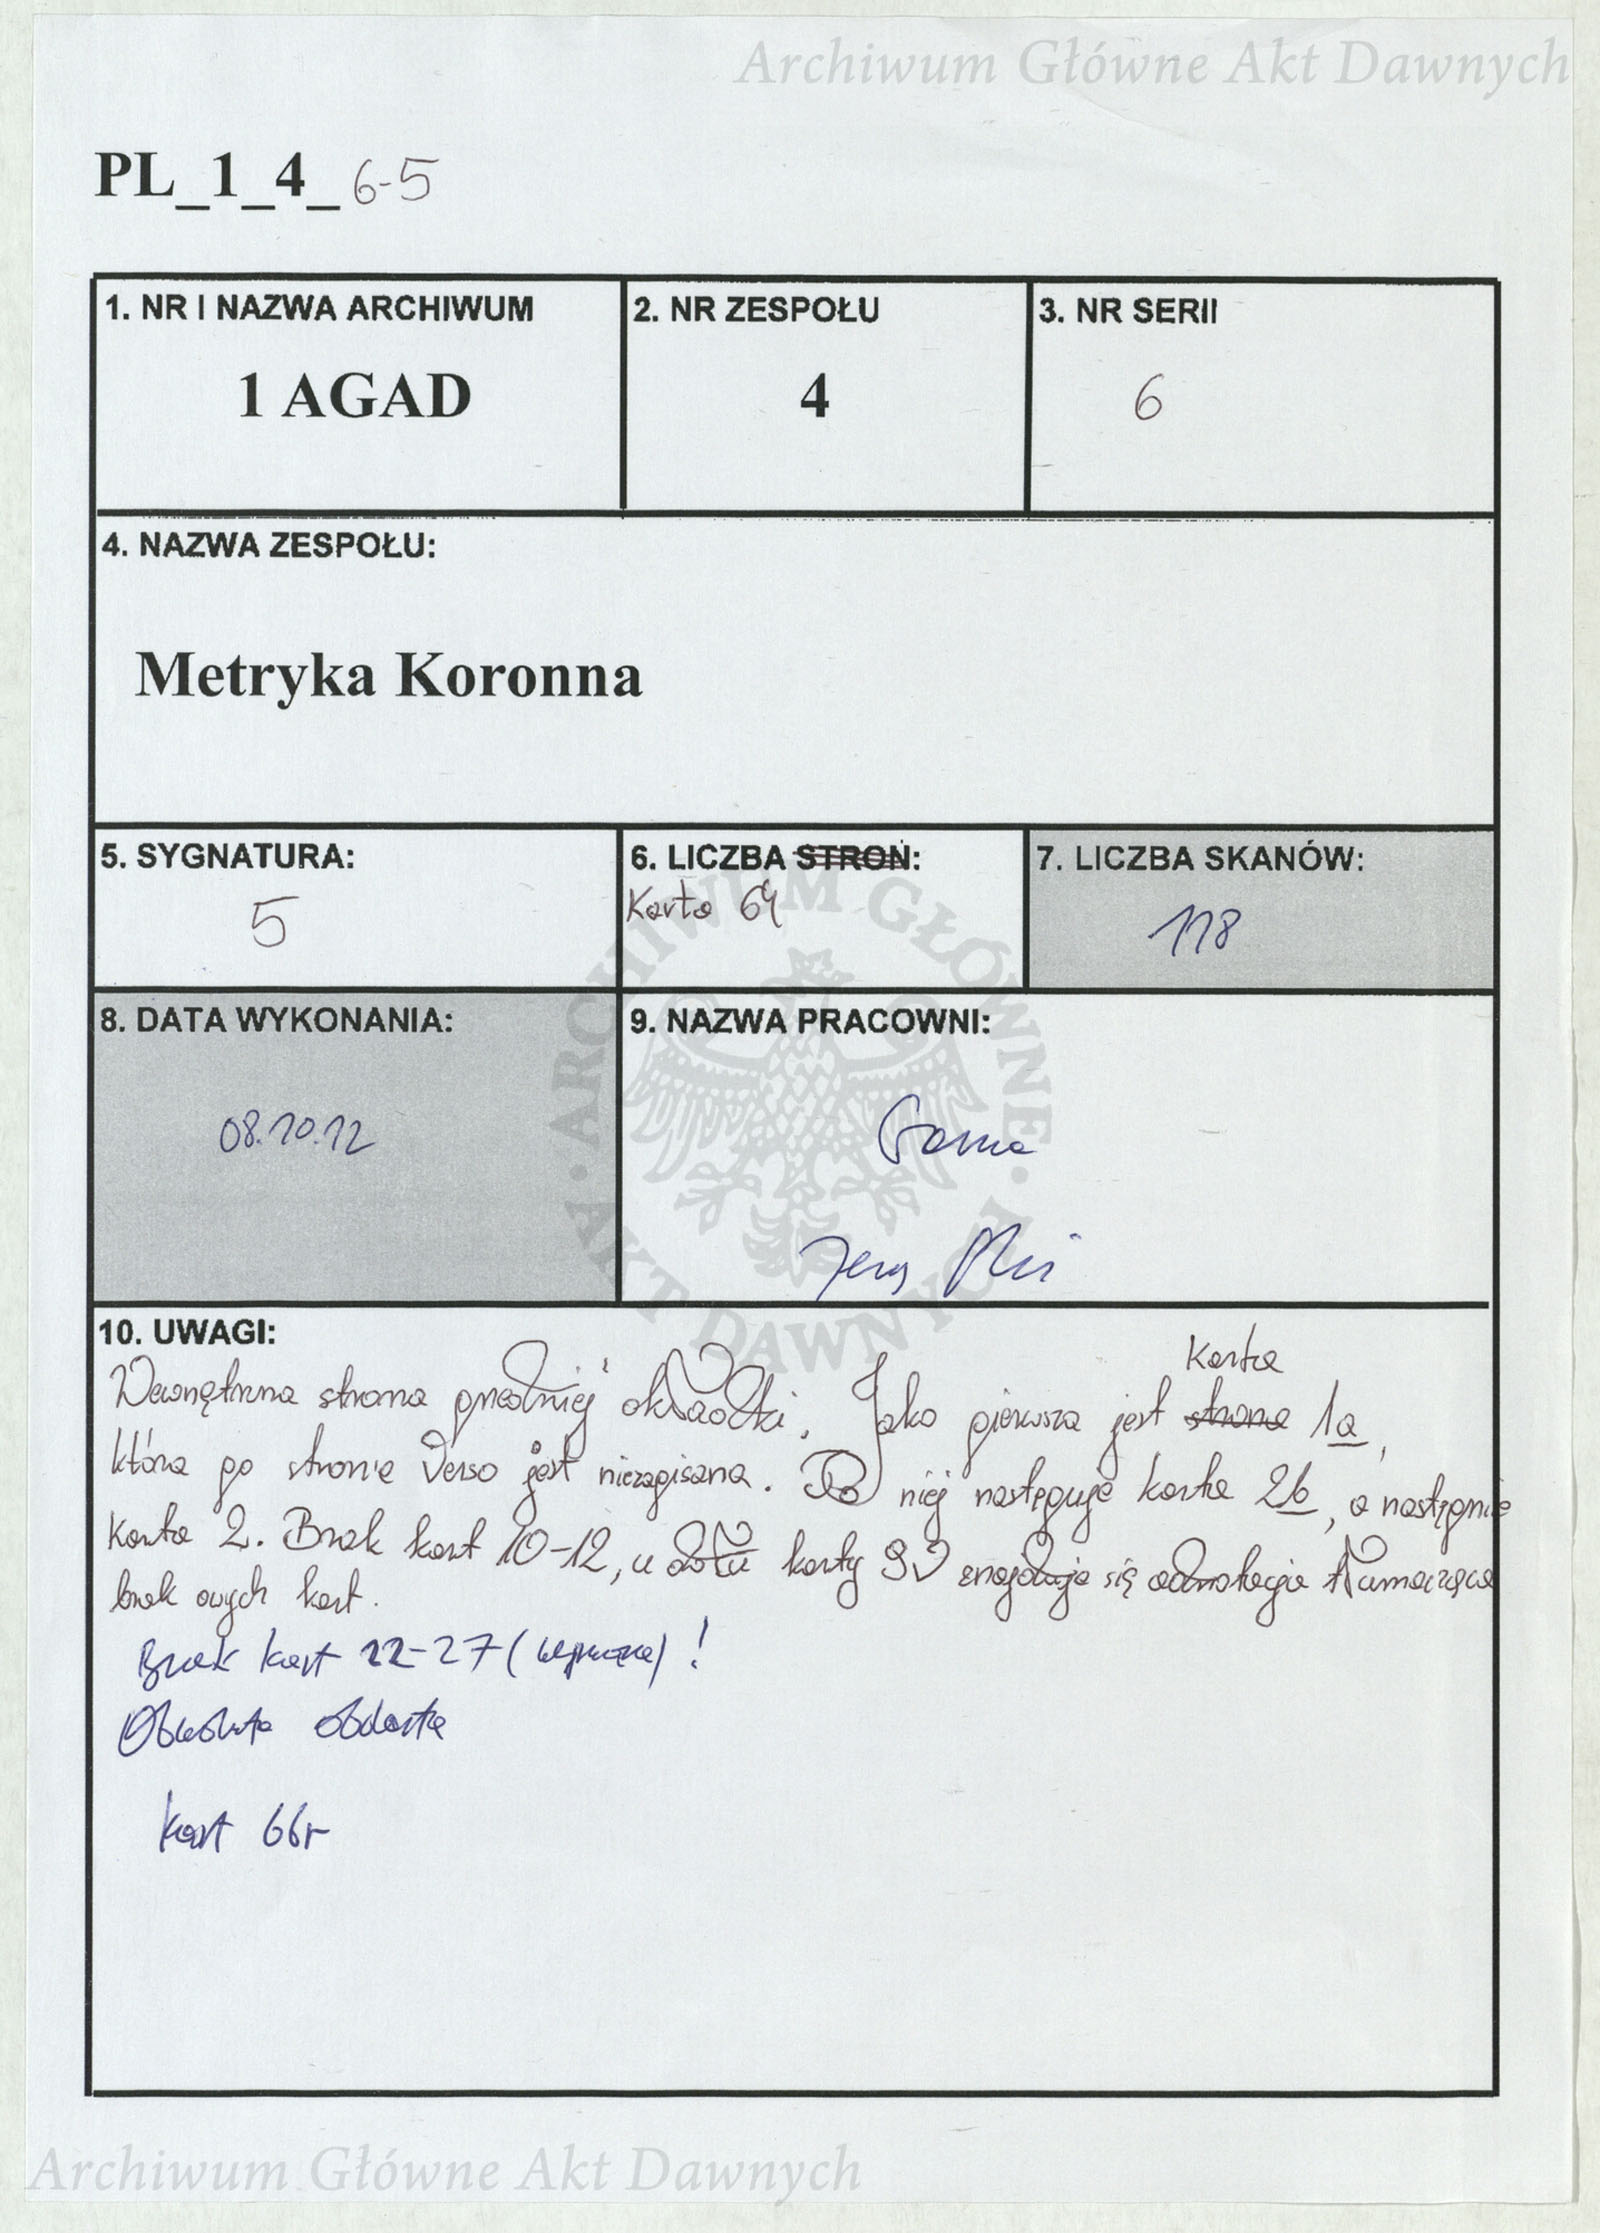 Archiwum Główne Akt Dawnych
PL_1_4_6-5
1. NR I NAZWA ARCHIWUM
1 AGAD
2. NR ZESPOŁU
4
3. NR SERII
6
4. NAZWA ZESPOŁU:
Metryka Koronna
5. SYGNATURA:
5
6. LICZBA STRON:
Karta 64
7. LICZBA SKANÓW:
118
8. DATA WYKONANIA:
08.10.12
9. NAZWA PRACOWNI:
ARCHIWUM GŁÓWNE AKT DAWNYCH
10. UWAGI:
Karta
Wewnętrzna strona przedniej okładki. Jako pierwsza jest strona 1a,
która po stronie verso jest niezapisana. Po niej następuje karta 2b, a następnie
karta 2. Brak kart 10-12, u dołu karty 9v znajduje się adnotacja tłumacząca
brak owych kart.
Brak kart 22-27 !
Obwoluta
kart 66r
Archiwum Główne Akt Dawnych